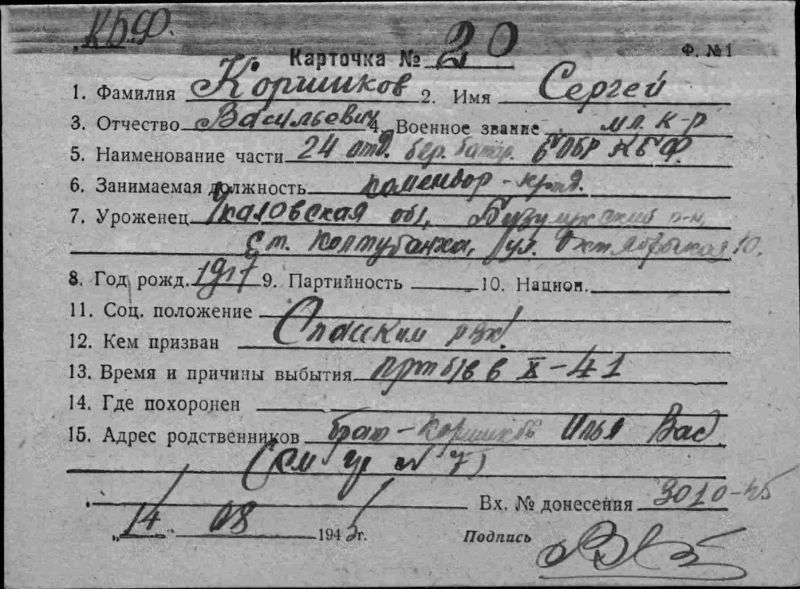 КБФ.
Карточка № 20 Ф. №1
1. Фамилия Коршиков 2. Имя Сергей
3. Отчество Васильевич 4. Военное звание мл. к-р
5. Наименование части 24 отд. бер. батр. БОБР КБФ.
6. Занимаемая должность комендор-
7. Уроженец Чкаловская обл, Бузулукский р-н,
ст. Колтубанка, ул. Октябрьская 10.
8. Год рожд. 1917 9. Партийность 10. Национ.
11. Соц. положение
12. Кем призван Спасским рвк
13. Время и причины выбытия в X-41
14. Где похоронен
15. Адрес родственников брат-Коршиков Илья Вас
(см
Вх. № донесения 3010-45
„14 08 1945г. Подпись